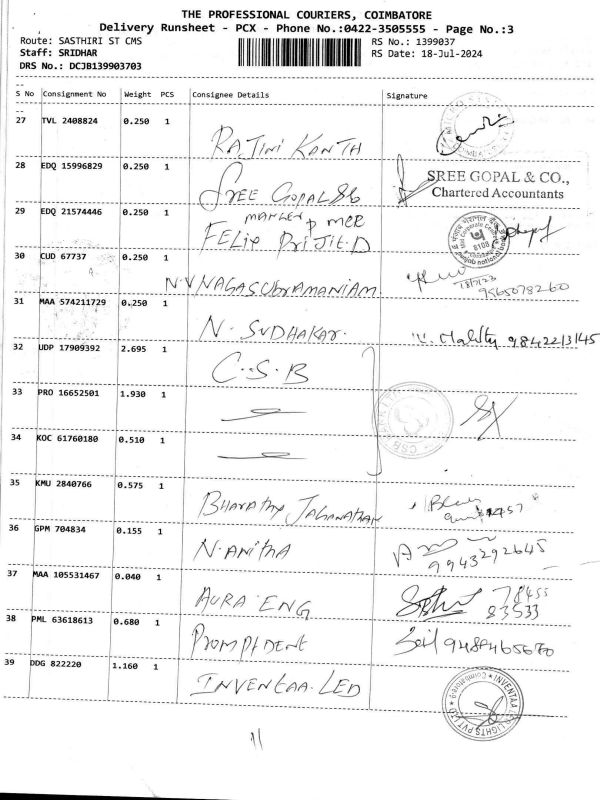 THE PROFESSIONAL COURIERS, COIMBATORE
Delivery Runsheet - PCX - Phone No.:0422-3505555 - Page No.:3
Route: SASTHIRI ST CMS
RS No.: 1399037
Staff: SRIDHAR
RS Date: 18-Jul-2024
DRS No.: DCJB139903703
S No Consignment No Weight PCS Consignee Details Signature
27 TVL 2408824 0.250 1 RAJINI KANTH
28 EDQ 15996829 0.250 1 SREE GOPAL & Co SREE GOPAL & CO.,
Chartered Accountants
29 EDQ 21574446 0.250 1 MANGER P MCC
FELIX PRIJIT.D
punjab national bank
30 CUD 67737 0.250 1 N.V NAGASUBRAMANIAM
9565078260
31 MAA 574211729 0.250 1 N. SUDHAKAR. 9842213145
32 UDP 17909392 2.695 1 C.S.B
33 PRO 16652501 1.930 1
34 KOC 61760180 0.510 1
35 KMU 2840766 0.575 1 BHARATHY JAGANATHAN
36 GPM 704834 0.155 1 N. ANITHA 9943292645
37 MAA 105531467 0.040 1 AURA ENG 78455
83533
38 PML 63618613 0.680 1 PROMPT DENT 9489465670
39 DDG 822220 1.160 1 INVENTAA LED
INVENTAA LED LIGHTS PVT LTD
Coimbatore